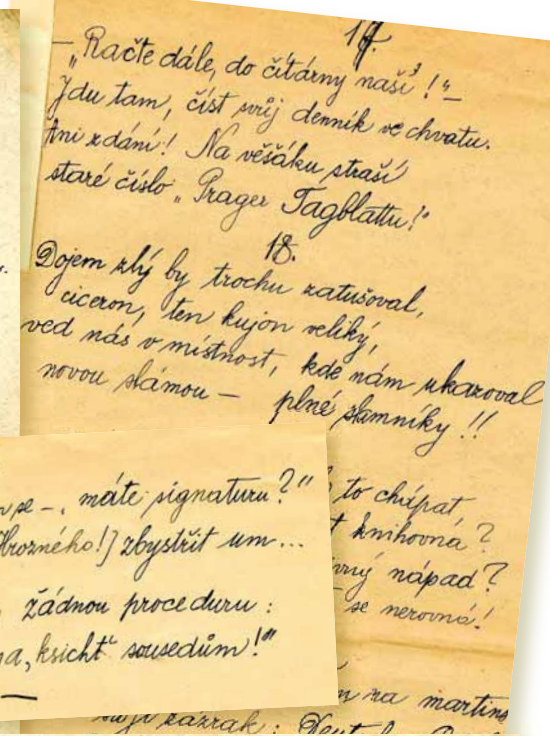 17.
– „Račte dále, do čítárny naší!“ –
Jdu tam, číst svůj denník ve chvatu.
Ani zdání! Na věšáku straší
staré číslo „Prager Tagblattu!“
18.
Dojem zlý by trochu zatušoval,
ciceron, ten kujon veliký,
ved nás v místnost, kde nám ukazoval
novou slámou – plné slamníky!!
to chápat
knihovná?
nápad?
se nerovná!
na martins
zázrak:
se –, máte signaturu?“
Hrozného!] zbystřit um...
žádnou proceduru:
na „ksicht“ sousedům!“